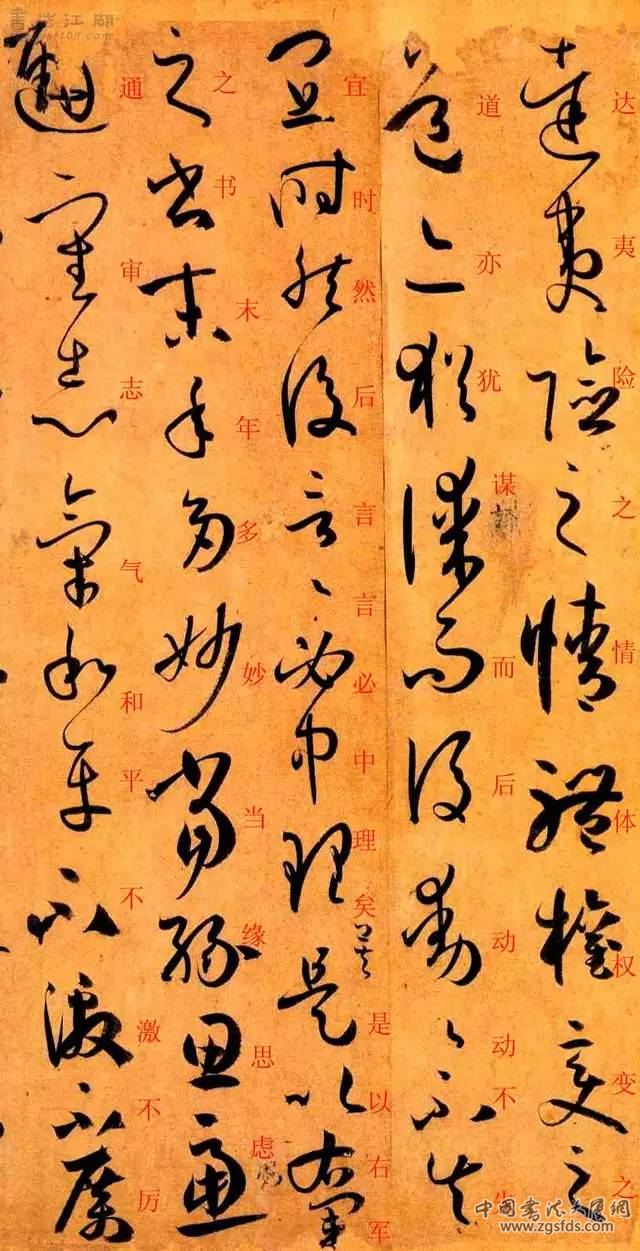 達夷險之情體權變之
达夷险之情体权变之
道亦猶謀而後動動不失
道亦犹谋而后动动不失
宜時然後言言必中理矣是以右軍
宜时然后言言必中理矣是以右军
之書末年多妙當緣思慮
之书末年多妙当缘思虑
通審志氣和平不激不厲
通审志气和平不激不厉
書法江湖
中國書法大厦網
www.zgsfds.com